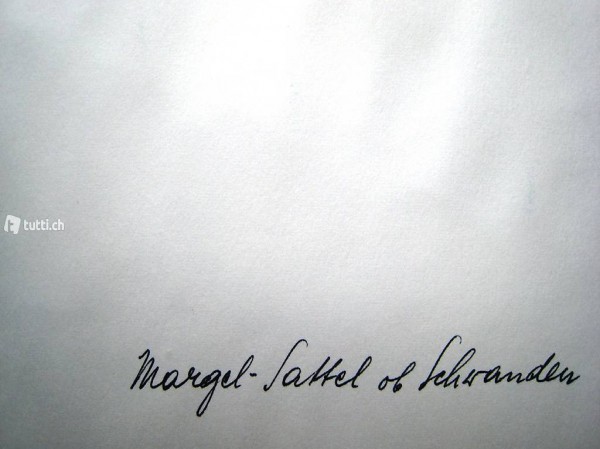 tutti.ch
Margel-Sattel ob Schwanden